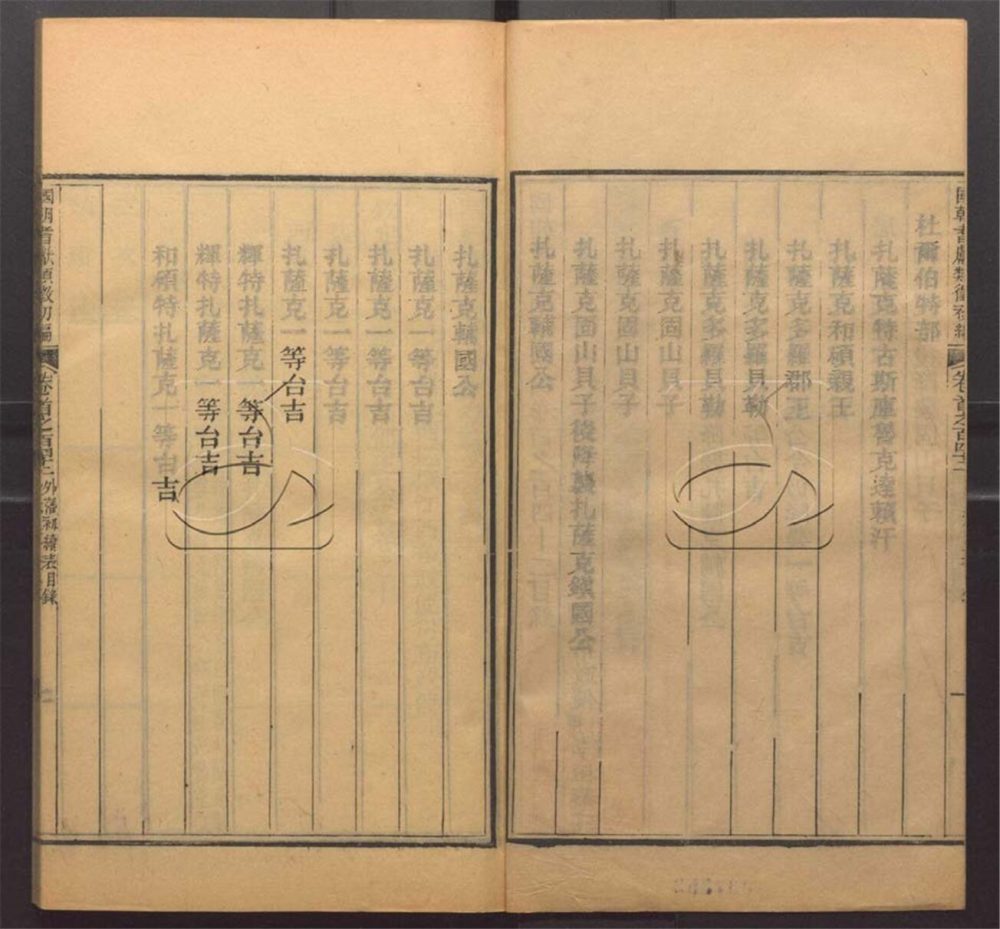 杜爾伯特部
扎薩克特古斯庫魯克達賴汗
扎薩克和碩親王
扎薩克多羅郡王
扎薩克多羅貝勒
扎薩克多羅貝勒
扎薩克固山貝子
扎薩克固山貝子
扎薩克固山貝子後降襲扎薩克鎮國公
扎薩克輔國公
扎薩克輔國公
扎薩克一等台吉
扎薩克一等台吉
扎薩克一等台吉
扎薩克一等台吉
輝特扎薩克一等台吉
輝特扎薩克一等台吉
和碩特扎薩克一等台吉
國朝耆獻類徵初編
卷首之百四十二
外藩初續表目錄